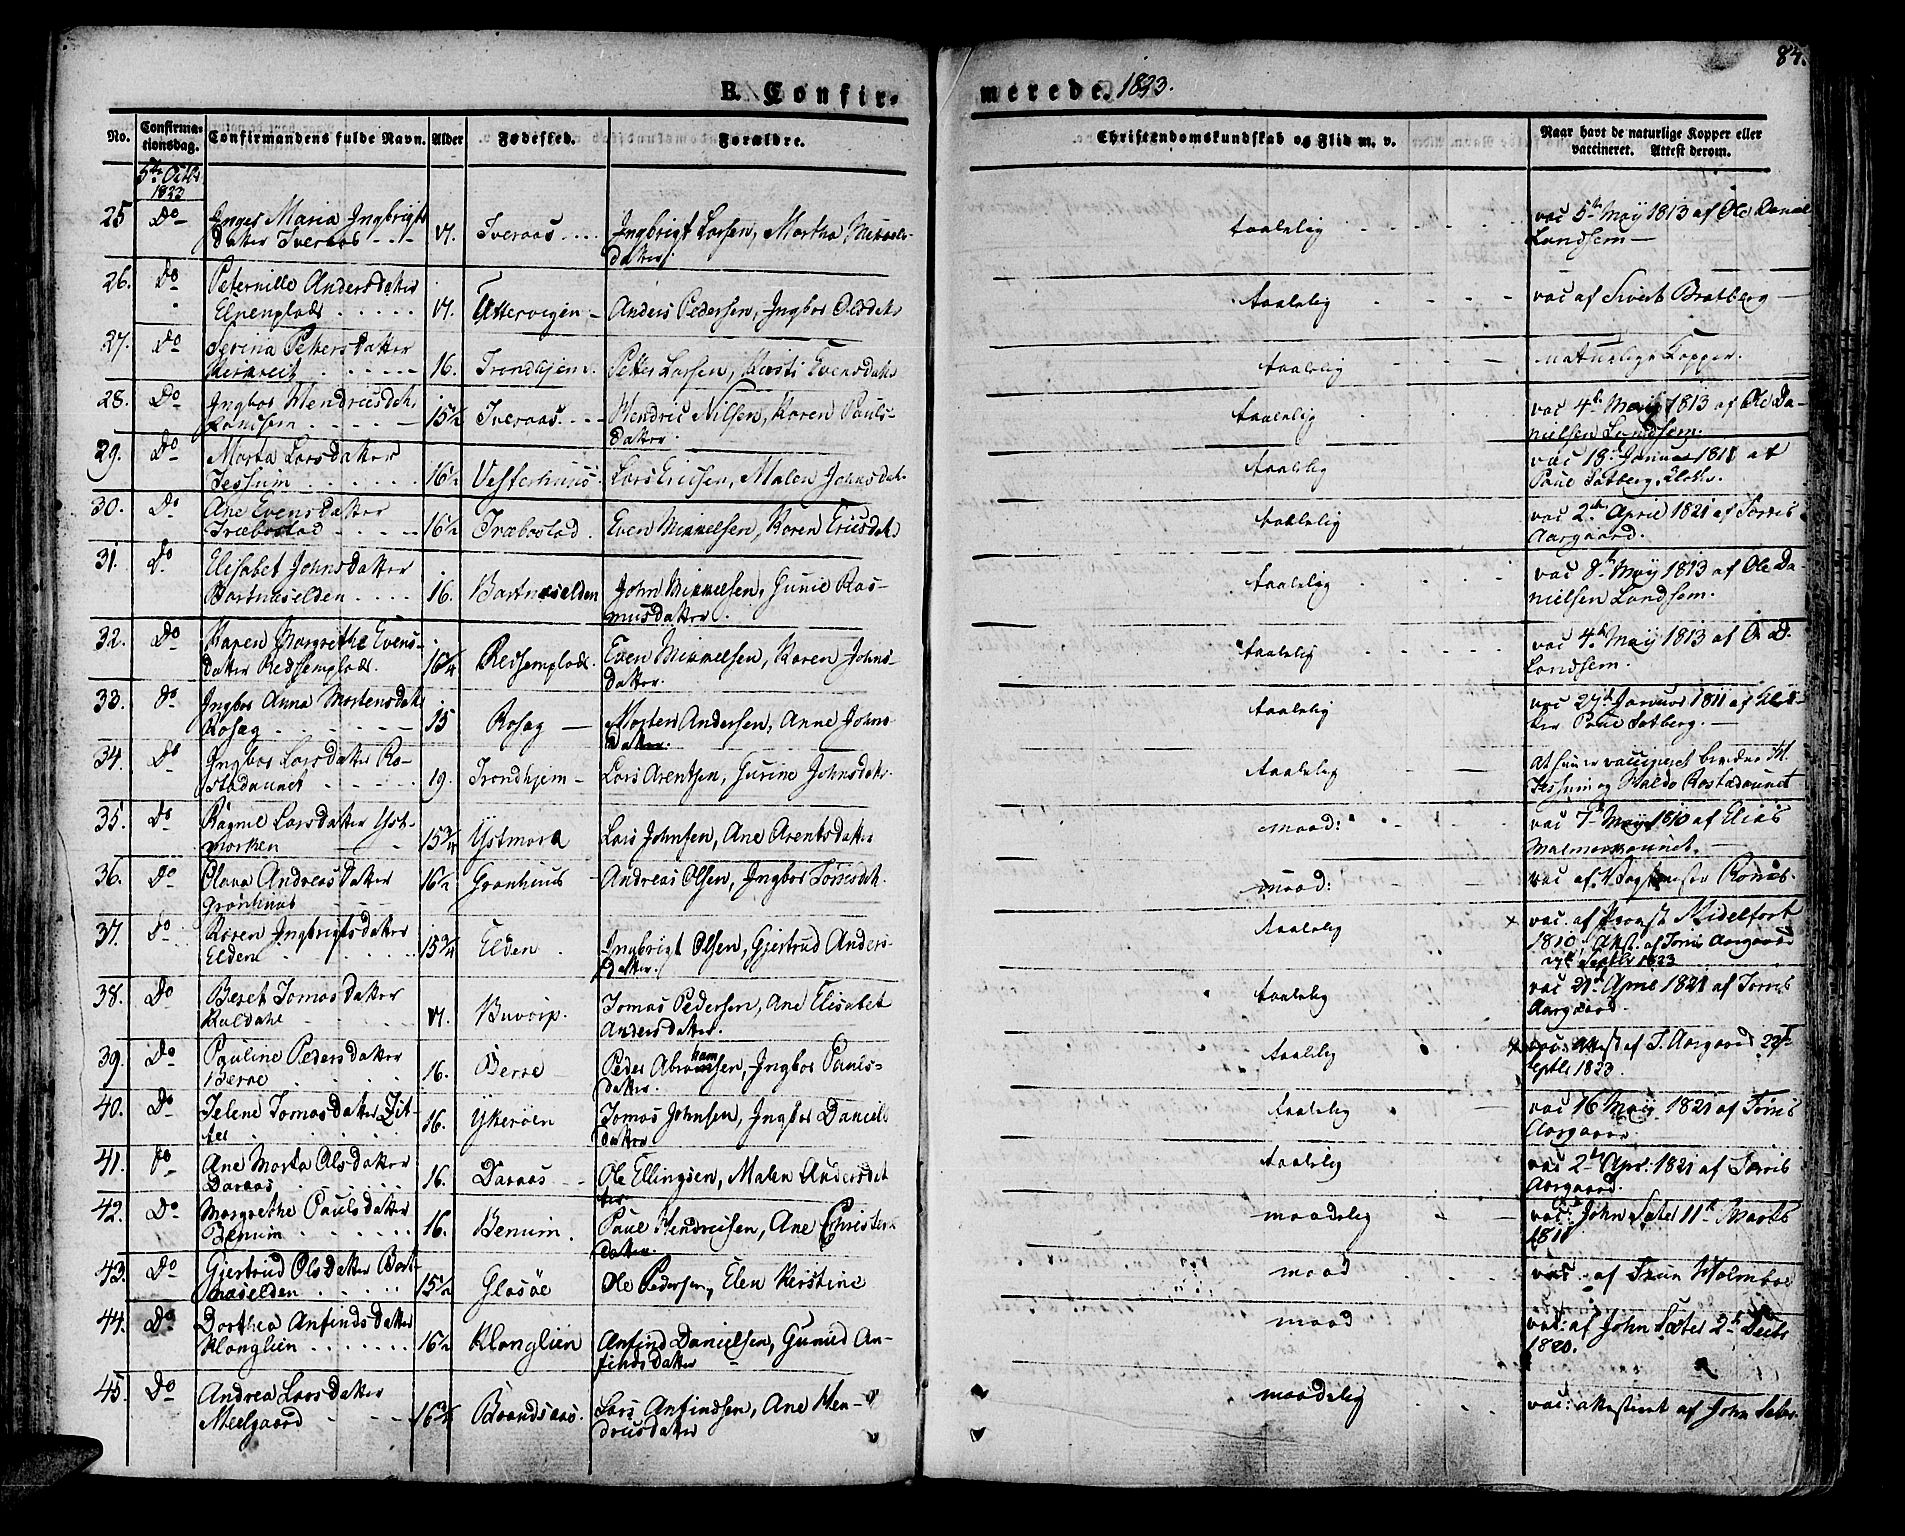 84.
B. Confir-
merede. 1823.
No.
Confirma-
tionsdag.
Confirmandens fulde Navn.
Alder
Fødested.
Forældre.
Christendomskundskab og Flid m. v.
Naar havt de naturlige Kopper eller
vaccineret. Attest derom.
5te Octbr
1823
25 Do Inger Maria Ingbrigts
datter Iveraas 17. Iveraas Ingbrigt Larsen, Martha Mikkels-
datter. taalelig vac 5te Maÿ 1813 af Ole Daniel
Landsem
26. Do Peternille Andersdatter
17. Anders Pedersen, Ingbor Olsdatr taalelig vac af Sivert Bratberg
27. Do Serina Pettersdatter
16. Trondhjem. Petter Larsen, Kersti Evensdatr taalelig naturlige Kopper.
28. Do Ingbor Hendricsdatr
Landsem 15½ Iveraas Hendric Nilsen, Karen Pauls-
datter. taalelig vac 4de Maÿ 1813 af Ole Da-
nielsen Landsem.
29. Do Marta Larsdatter
Tessum 16½ Vesterhuus Lars Ericsen, Malen Johnsdatr taalelig vac 18 Januar 1811 af
Paul Satberg, Klokr.
30. Do Ane Evensdatter
Træbostad 16½ Træbostad. Even Mikkelsen, Karen Ericsdatr taalelig vac 2den April 1821 af Torris
Aargaard.
31. Do Elisabet Johnsdatter
Bartnæselden 16. Bartnæselden John Mikkelsen, Gunil Ras-
musdatter. taalelig vac 8de Maÿ 1813 af Ole Da
nielsen Landsem.
32. Do Karen Margrethe Evens-
datter Redsemplads. 16¾ Redsemplads. Even Mikkelsen, Karen Johns-
datter. taalelig vac 4de Maÿ 1813 af O. D.
Landsem.
33. Do Ingbor Anna Mortensdatr
Rosag 15 Rosag Morten Andersen, Anne Johns
datter. taalelig vac 27de Januar 1811 af Klok-
ker Paul Satberg.
34. Do Ingbor Larsdatter Ro-
stadaunet 19. Trondhjem Lars Arentsen, Gurine Johnsdatr. taalelig At hun er vaccineret
Tessum og Waldo Rostadaunet
35. Do Ragnil Larsdatter Yst-
morken 15¾ Ystmark Lars Johnsen, Ane Arentsdatter maad: vac 7de Maÿ 1810 af Elias
Malmoeaunet.
36. Do Olava Andreasdatter
Grønhuus 16½ Grønhuus Andreas Olsen, Ingbor Torrisdatr. maad: vac af
37. Do Karen Ingbrigtsdatter
Elden 15¾ Elden. Ingbrigt Olsen, Gjertrud Anders
datter. taalelig × vac. af Provst Midelfort
1810. Attest. af Torris Aargaard
Septbr 1823
38. Do Beret Tomasdatter
Kaldahl 17. Buvarp. Tomas Pedersen, Ane Elisabet
Andersdatter. taalelig vac 21de April 1821 af Torris
Aargaard.
39. Do Pauline Pedersdatter
Berre 16. Berre Peder Abrahamsen, Ingbor Pauls-
datter. taalelig Attest af T. Aargaard 22de
Septbr 1823.
40. Do Jelene Tomasdatter 16. Ykerøen Tomas Johnsen, Ingbor Daniels
datter taalelig vac 16 Maÿ 1821 af Torris
Aargaard
41. Do Ane Marta Olsdatter
Daraas 16. Daraas Ole Ellingsen, Malen Andersdat
ter taalelig vac 2den Apr: 1821 af Torris
Aargaard.
42. Do Margrethe Paulsdatter
Benum 16. Benum. Paul Hendricsen, Ane Christens
datter maadelig vac: John Sæter 11te Marts
1811
43. Do Gjertrud Olsdatter Bart-
næselden 15½ Glasøe Ole Pedersen, Elen Kerstine maad vac af Holmboe
44. Do Dorthea Anfindsdatter
Klonglien 16½ Klonglien Anfind Danielsen, Gunild An-
findsdatter maad vac: af John Sæter 2den Decbr
1820.
45. Do Andrea Larsdatter
Meelgaard 16¾ Brandsaas. Lars Anfindsen, Ane Hen-
dricsdatter maadelig vac: attesteret af John Sæter